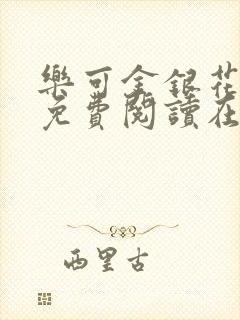 樂可金銀花
免費閱讀在
西里古